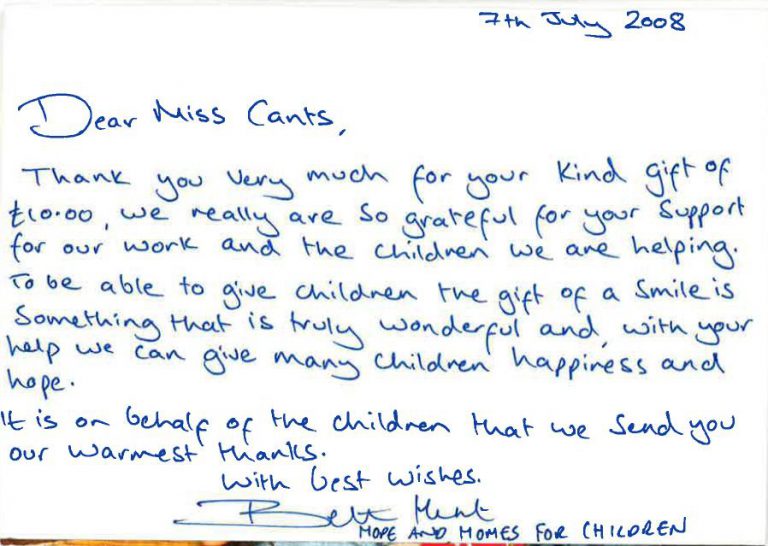 7th July 2008
Dear Miss Cants,
Thank you very much for your kind gift of
£10.00, we really are so grateful for your support
for our work and the children we are helping.
To be able to give children the gift of a smile is
something that is truly wonderful and, with your
help we can give many children happiness and
hope.
It is on behalf of the children that we send you
our warmest thanks.
With best wishes.
HOPE AND HOMES FOR CHILDREN